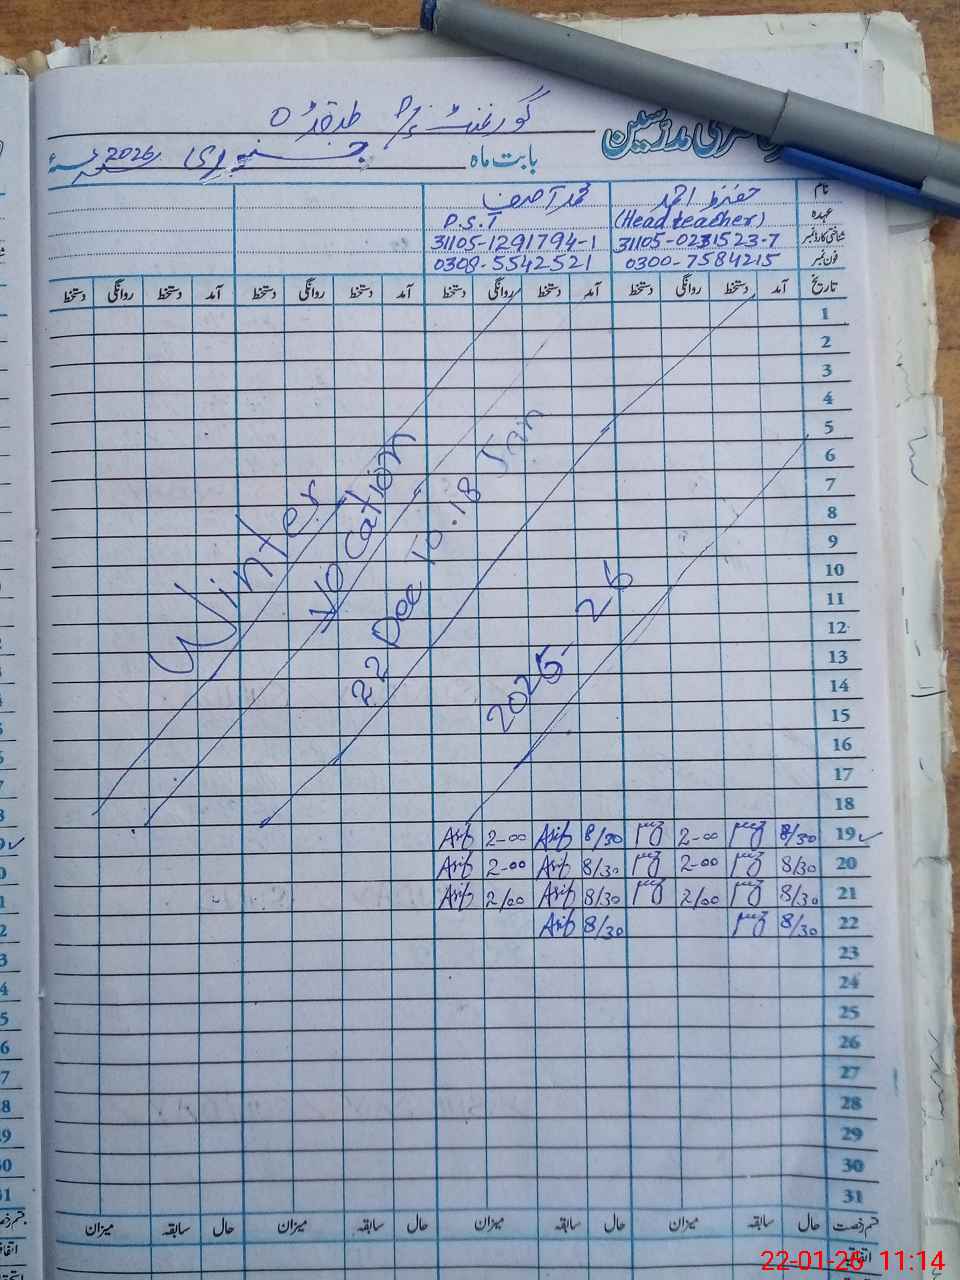 گورنمنٹ
حاضری مدرسین
بابت ماہ جنوری 2026ء
نام
حفیظ احمد
محمد آصف
عہدہ
(Head teacher)
P.S.T
شناختی کارڈ نمبر
31105-0231523-7
31105-1291794-1
فون نمبر
0300-7584215
0308-5542521
تاریخ آمد دستخط روانگی دستخط آمد دستخط روانگی دستخط آمد دستخط روانگی دستخط آمد دستخط روانگی دستخط
1
2
3
4
5
6
7
8
9
10
11
12
13
14
15
16
17
18
Winter
Vocation
22 Dec To 18 Jan
2025-26
19 8/30 2-00 8/30 Asif 2-00 Asif
20 8/30 2-00 8/30 Asif 2-00 Asif
21 8/30 2/00 8/30 Asif 2/00 Asif
22 8/30 8/30 Asif
23
24
25
26
27
28
29
30
31
قسم رخصت حال سابقہ میزان حال سابقہ میزان حال سابقہ میزان حال سابقہ میزان
اتفاقیہ
22-01-26 11:14